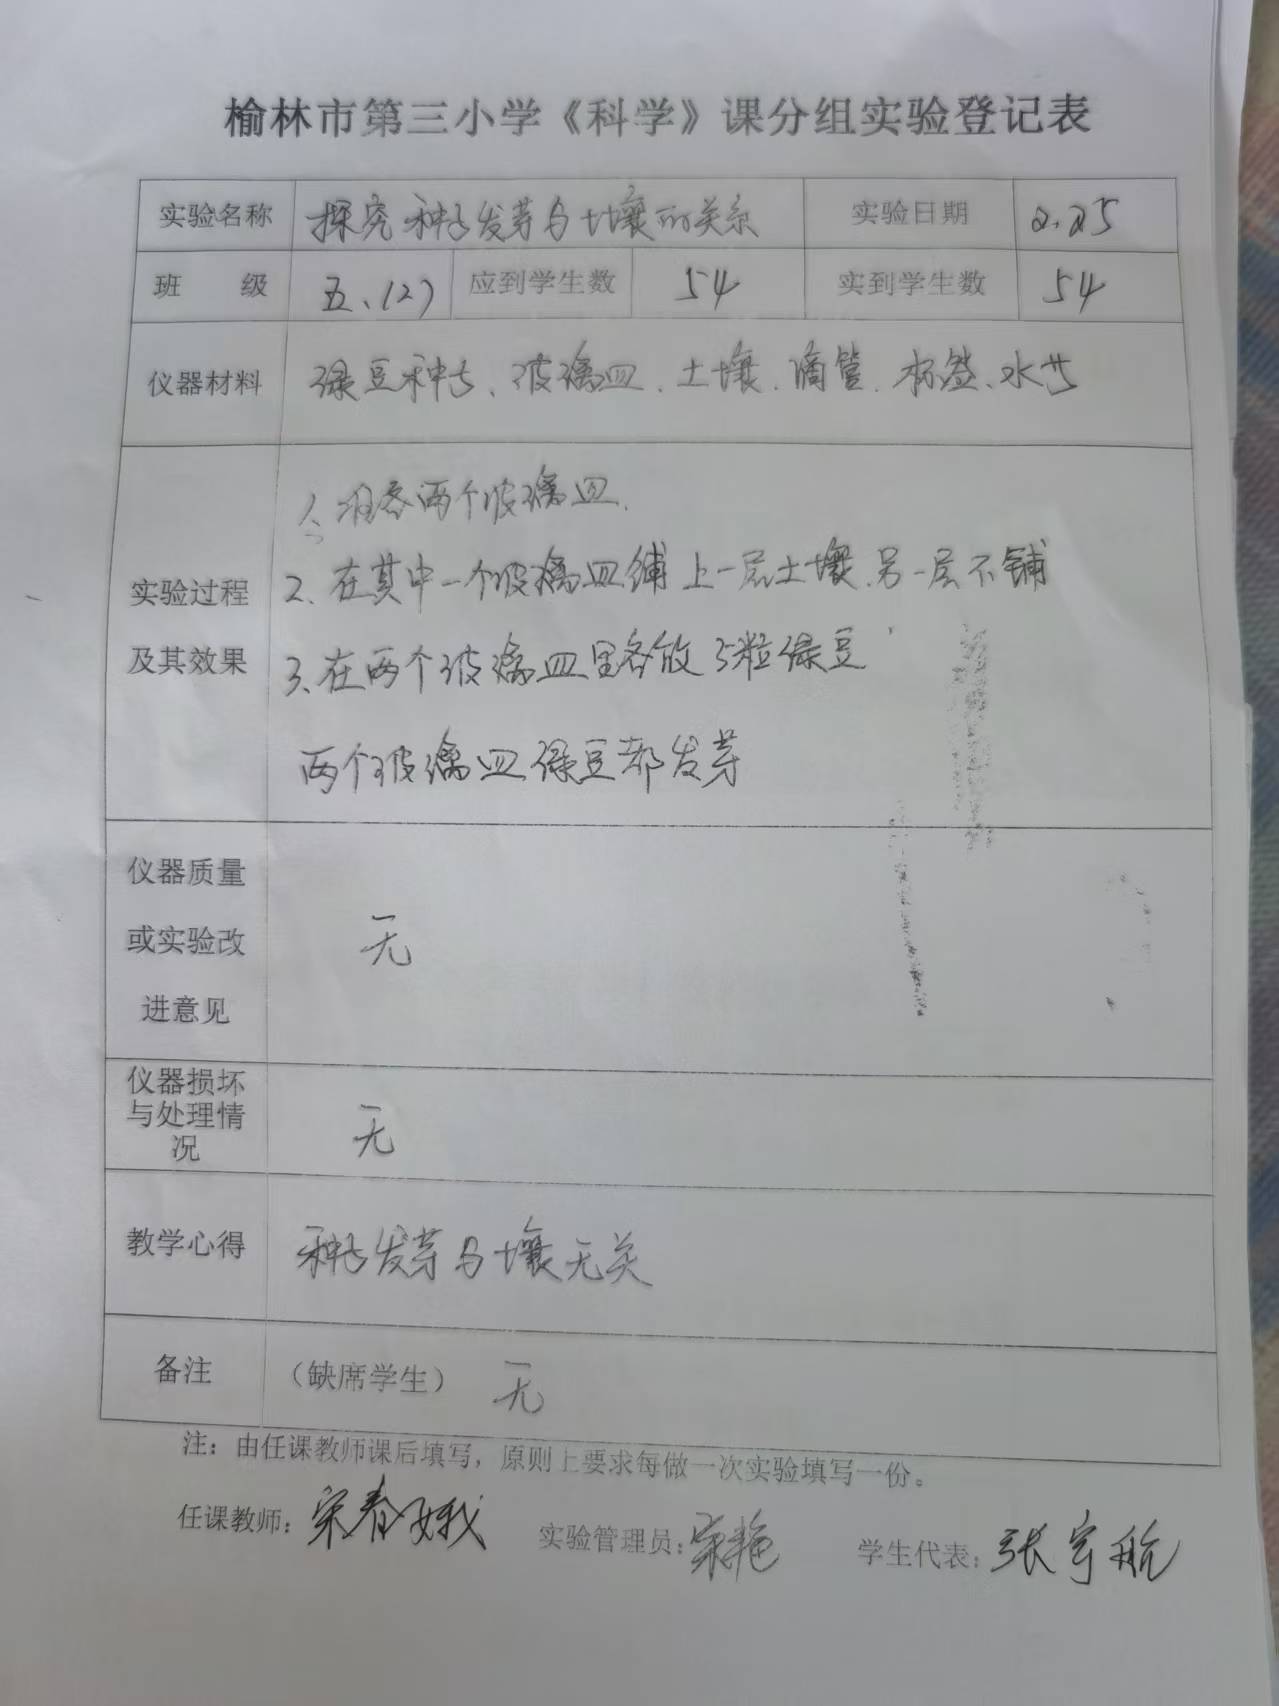 榆林市第三小学《科学》课分组实验登记表
实验名称 探究种子发芽与土壤的关系 实验日期 2.25
班 级 五、(2) 应到学生数 54 实到学生数 54
仪器材料 绿豆种子、玻璃皿、土壤、滴管、标签、水等
1、准备两个玻璃皿.
2、在其中一个玻璃皿铺上一层土壤.另一层不铺
3、在两个玻璃皿里各放5粒绿豆
两个玻璃皿绿豆都发芽
实验过程
及其效果
仪器质量
或实验改
进意见
无
仪器损坏
与处理情
况
无
教学心得 种子发芽与土壤无关
备注 （缺席学生） 无
注：由任课教师课后填写，原则上要求每做一次实验填写一份。
任课教师：宋春娥 实验管理员：宋艳 学生代表：张宇航